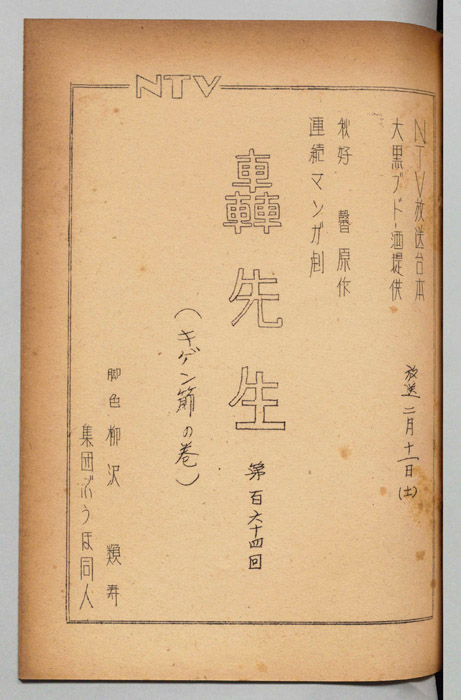 NTV
NTV放送台本
大黒ブドー酒提供
放送 二月十一日(土)
秋好 馨 原作
連続マンガ劇
轟先生
第百六十四回
(キゲン節の巻)
脚色 柳沢 類寿
集団ぶうほ同人